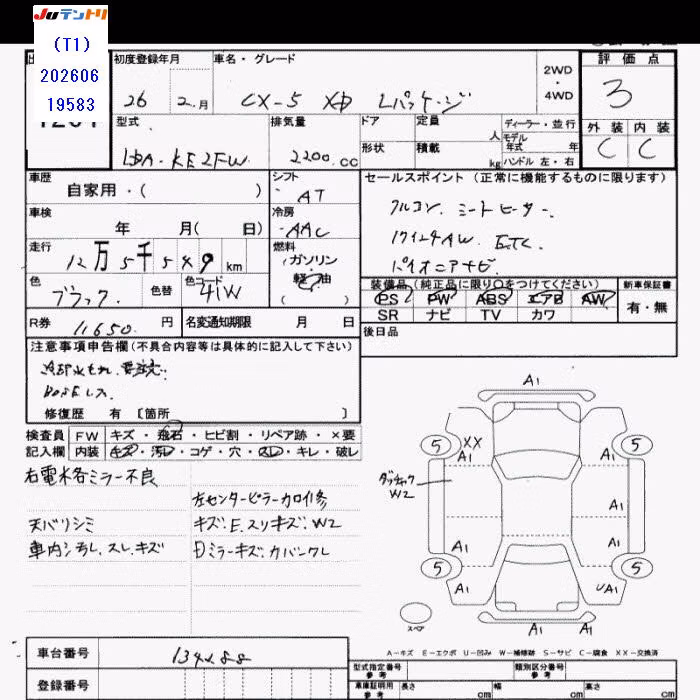 JUテントリ
(T1)
202606
19583
初度登録年月 車名・グレード 評価点
26 2月 CX-5 XD Lパッケージ 2WD 4WD 3
外装 内装
C C
型式 排気量 ドア 定員 ディーラー・並行
LDA-KE2FW 2200 cc 形状 積載 人 kg モデル年式 年 ハンドル 左・右
車歴 自家用・( ) シフト AT セールスポイント(正常に機能するものに限ります)
車検 年 月( 日) 冷房 AAC フルコン. シートヒーター.
走行 12万5千549km 燃料 ガソリン 軽油 ( ) 17インチAW. ETC.
パイオニアナビ.
色 ブラック. 色替 色コード 41W 装備品(純正品に限り○をつけてください) 新車保証書
PS PW ABS エアB AW 有・無
SR ナビ TV カワ
R券 11650. 円 名変通知期限 月 日
後日品
注意事項申告欄(不具合内容等は具体的に記入して下さい)
冷却水もれ. 要注意.
BOSEレス.
修復歴 有 〔箇所 〕
検査員記入欄 FW キズ・飛石・ヒビ割・リペア跡・×要
内装 キズ・汚レ・コゲ・穴・スレ・キレ・破レ
右電水各ミラー不良
左センターピラーカロイ修
天バリシミ キズ.E.スリキズ.W2
車内シ汚レ.スレ.キズ Dミラーキズ.カバンクレ
A1
5 XX A1 A1 5
ダッシュック W2
A1
A1 A1
5 5
A1 UA1
スペア A1 A1
A－キズ E－エクボ U－凹み W－補修跡 S－サビ C－腐食 XX－交換済
車台番号 134288
登録番号
型式指定番号 参考 類別区分番号 参考
車庫証明用 参考 長さ cm 幅 cm 高さ cm